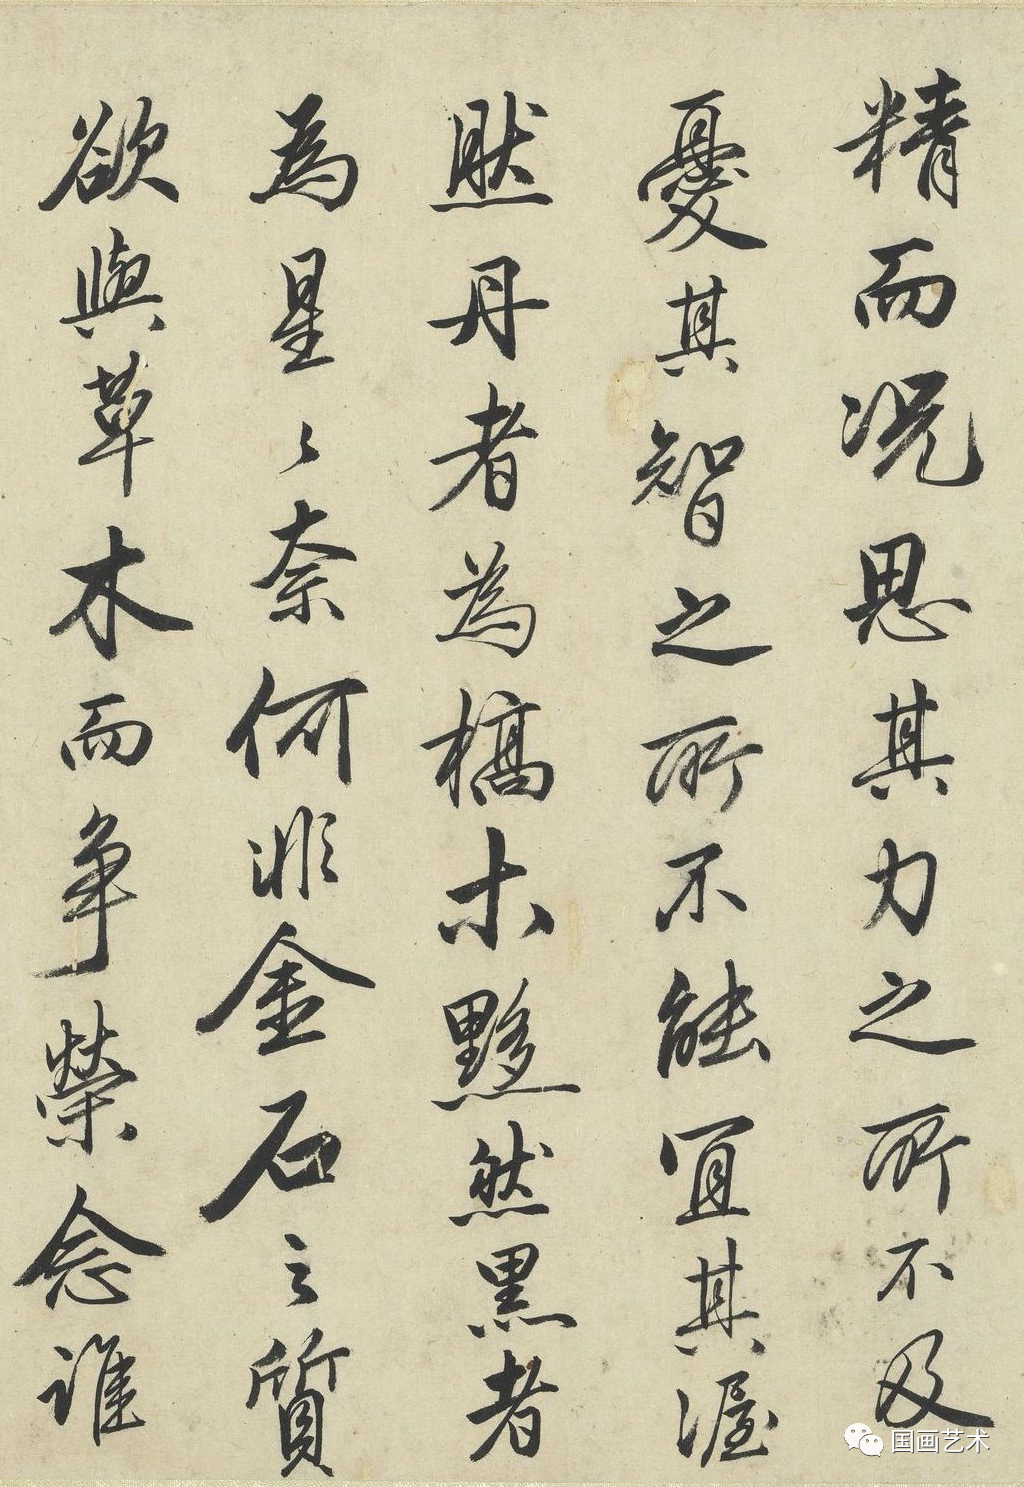 精而况思其力之所不及
憂其智之所不能宜其渥
然丹者為槁木黟然黑者
為星々奈何非金石之質
欲與草木而争榮念誰
国画艺术